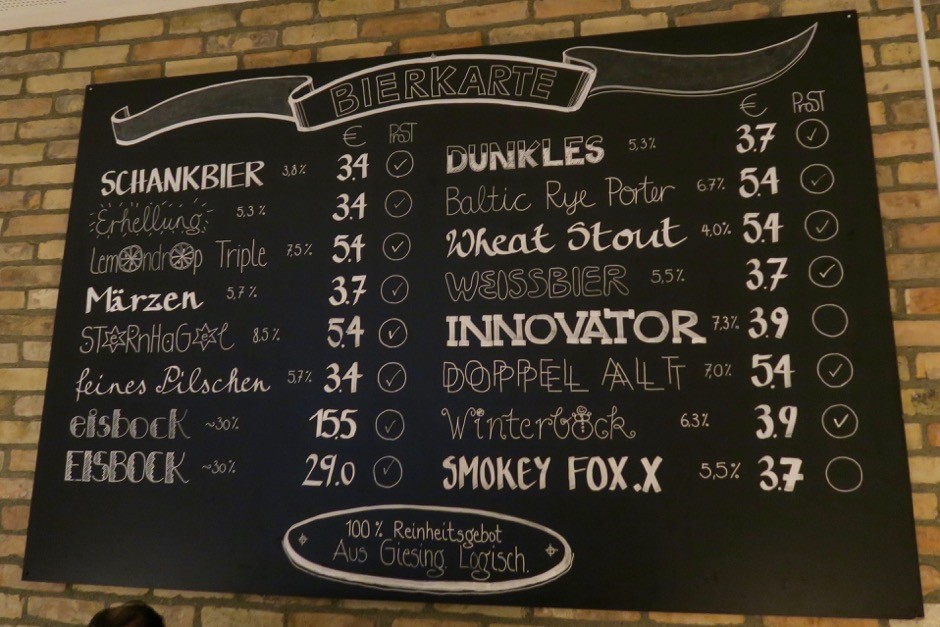 BIERKARTE
€ PRoST
SCHANKBIER 3,8% 3.4
Erhellung 5,3% 3.4
Lemondrop Triple 7,5% 5.4
Märzen 5,7% 3.7
STeRnHaGeL 8.5% 5.4
feines Pilschen 5,7% 3.4
eisbock ~30% 15.5
EISBOCK ~30% 29.0
€ PRoST
DUNKLES 5,3% 3.7
Baltic Rye Porter 6.7% 5.4
Wheat Stout 4,0% 5.4
WEISSBIER 5,5% 3.7
INNOVATOR 7,3% 3.9
DOPPEL ALT 7,0% 5.4
Winterbock 6.3% 3.9
SMOKEY FOX.X 5,5% 3.7
100% Reinheitsgebot
Aus Giesing. Logisch.